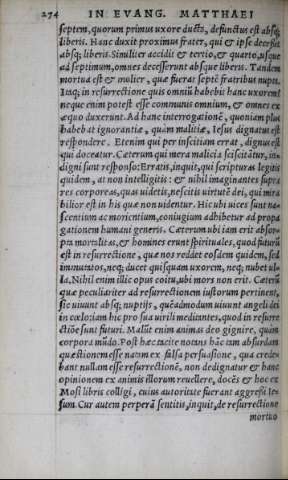 274 IN EVANG. MATTHAEI
septem, quorum primus uxore ducta, defunctus est absq;
liberis. Hanc duxit proximus frater, qui & ipse decessit
absq; liberis. Similiter accidit & tertio, & quarto, usque
ad septimum, omnes decesserunt absque liberis. Tandem
mortua est & mulier, quæ fuerat septē fratribus nupta.
Itaq; in resurrectione quis omniū habebit hanc uxorem?
neque enim potest esse communis omnium, & omnes ex
æquo duxerunt. Ad hanc interrogationē, quoniam plus
habebat ignorantiæ, quàm malitiæ, Iesus dignatus est
respondere. Etenim qui per inscitiam errat, dignus est
qui doceatur. Cæterum qui mera malicia sciscitātur, in-
digni sunt responso: Erratis, inquit, qui scripturas legitis
quidem, at non intelligitis: & nihil imaginantes supra
res corporeas, quas uidetis, nescitis uirtutē dei, qui mira
bilior est in his quæ non uidentur. Hic ubi uices sunt na-
scentium ac morientium, coniugium adhibetur ad propa
gationem humani generis. Cæterum ubi iam erit absor-
pta mortalitas, & homines erunt spirituales, quod futurū
est in resurrectione, quæ nos reddet eosdem quidem, sed
immutatos, neq; ducet quisquam uxorem, neq; nubet ul-
la. Nihil enim illic opus coitu, ubi mors non erit. Cæterū
quæ peculiariter ad resurrectionem iustorum pertinent,
sic uiuunt absq; nuptijs, quēadmodum uiuunt angeli dei
in cœlo iam hic pro sua uirili meditantes, quod in resurre
ctiōe sunt futuri. Malūt enim animas deo gignere, quàm
corpora mūdo. Post hæc tacite notans hāc tam absurdam
quæstionem esse natam ex falsa persuasione, qua crede-
bant nullam esse resurrectionē, non dedignatur & hanc
opinionem ex animis illorum reuellere, docēs & hoc ex
Mosi libris colligi, cuius autoritate fuerant aggressi Ie-
sum. Cur autem perperā sentitis, inquit, de resurrectione
mortuo